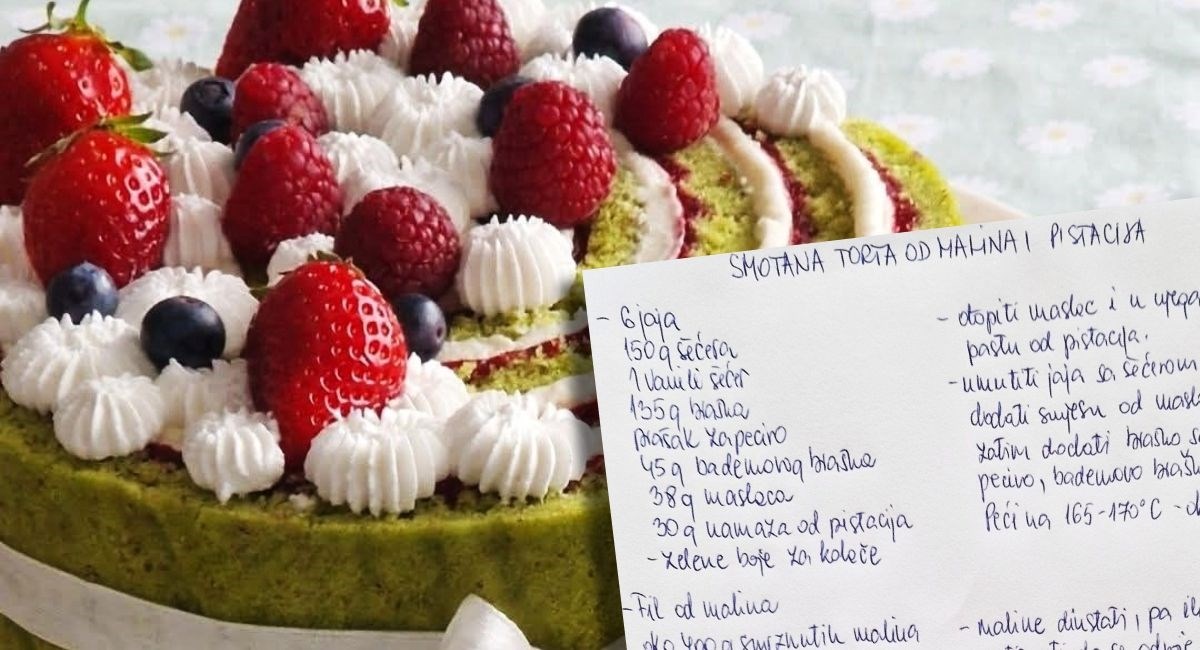 SMOTANA TORTA OD MALINA I PISTACIJA
- 6 jaja
150g šećera
1 vanili šećer
135g brašna
prašak za pecivo
45g bademovog brašna
38g maslaca
30g namaza od pistacija
- zelene boje za kolače
- Fil od malina
oko 400 g smrznutih malina
- otopiti maslac i u njega
pastu od pistacija.
- umutiti jaja sa šećerom
dodati smjesu od
zatim dodati brašno
pecivo, bademovo
Peći na 165-170°C -
- maline dinstati, pa